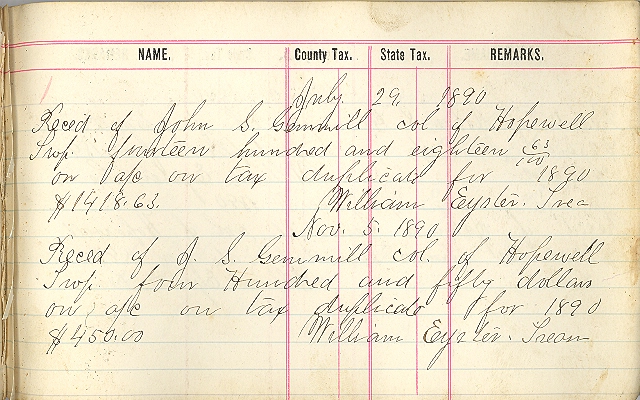 NAME. County Tax. State Tax. REMARKS.
July. 29, 1890
Reced of John S. Gemmill col of Hopewell
Twp. fourteen hundred and eighteen 63/100
on a/c on tax duplicate for 1890
$1418.63. William Eyster. Trea
Nov. 5. 1890
Reced of J. S. Gemmill col. of Hopewell
Twp four Hundred and fifty dollars
on a/c on tax duplicate for 1890
$450.00 William Eyster. Treas